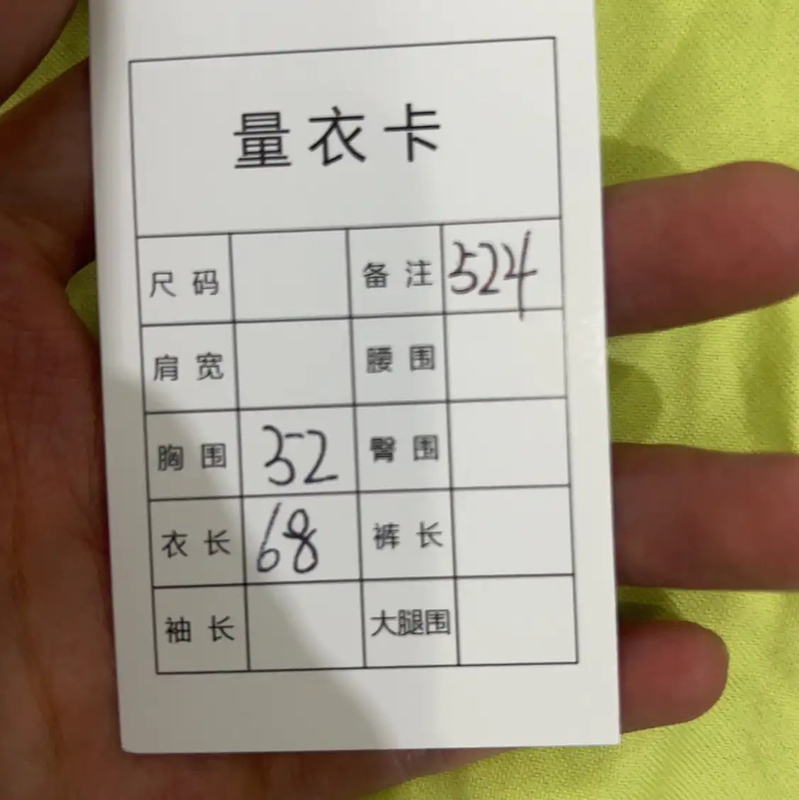 量衣卡
尺码 备注 524
肩宽 腰围
胸围 52 臀围
衣长 68 裤长
袖长 大腿围